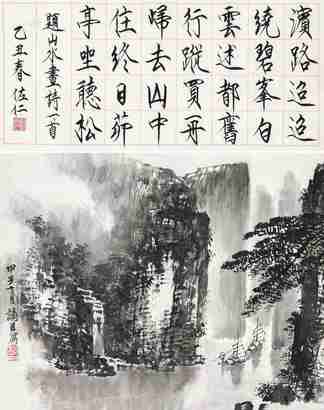 濱路迢迢
繞碧峯白
雲述都舊
行蹤買舟
歸去山中
住終日茆
亭坐聽松
題山水畫詩一首
乙丑春 佐仁